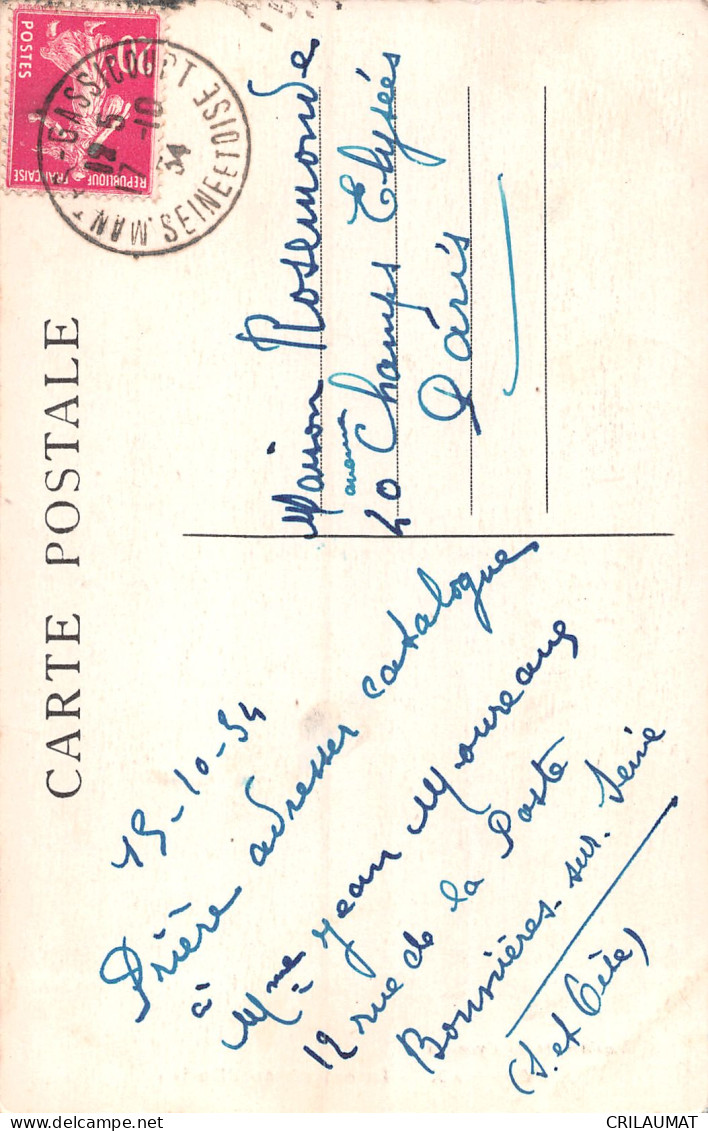 CARTE POSTALE
20
POSTES
REPUBLIQUE FRANÇAISE
GASSICOURT
SEINE ET OISE
5
10
34
15-10-34
Prière adresser catalogue
à
Mme Jean
12 rue de la Poste
sur Seine
(S. et Oise)
Maison Rosemonde
avenue
20 Champs Elysées
Paris
CRILAUMAT